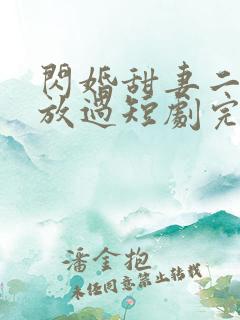 閃婚甜妻二
放過短劇完
潘金抱
未经同意禁止转载